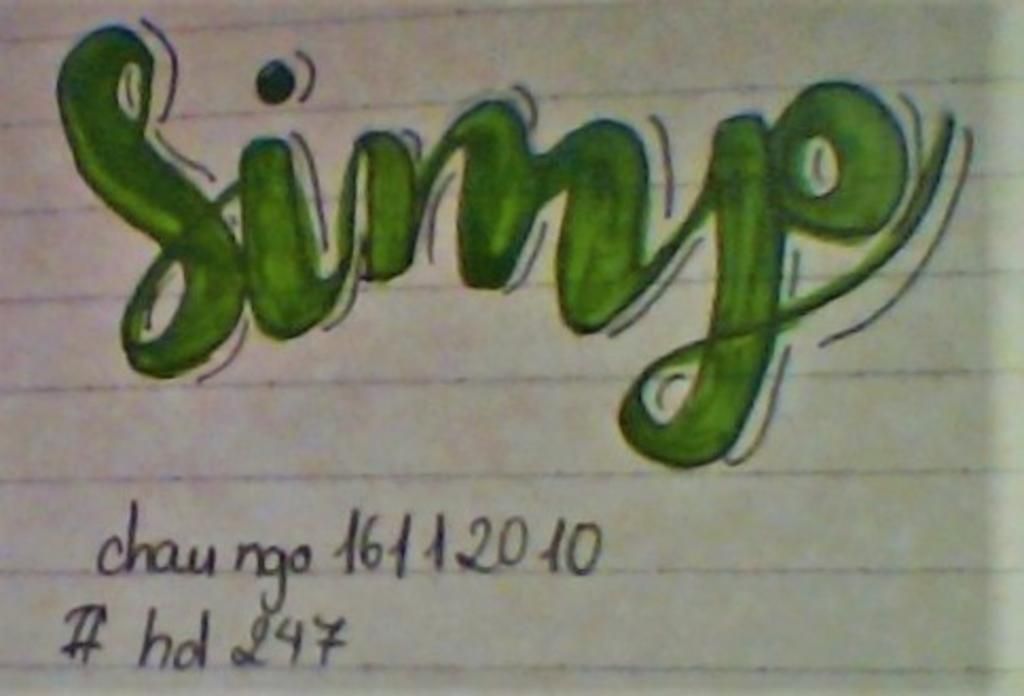 simp
chau ngo 16112010
# hd 247